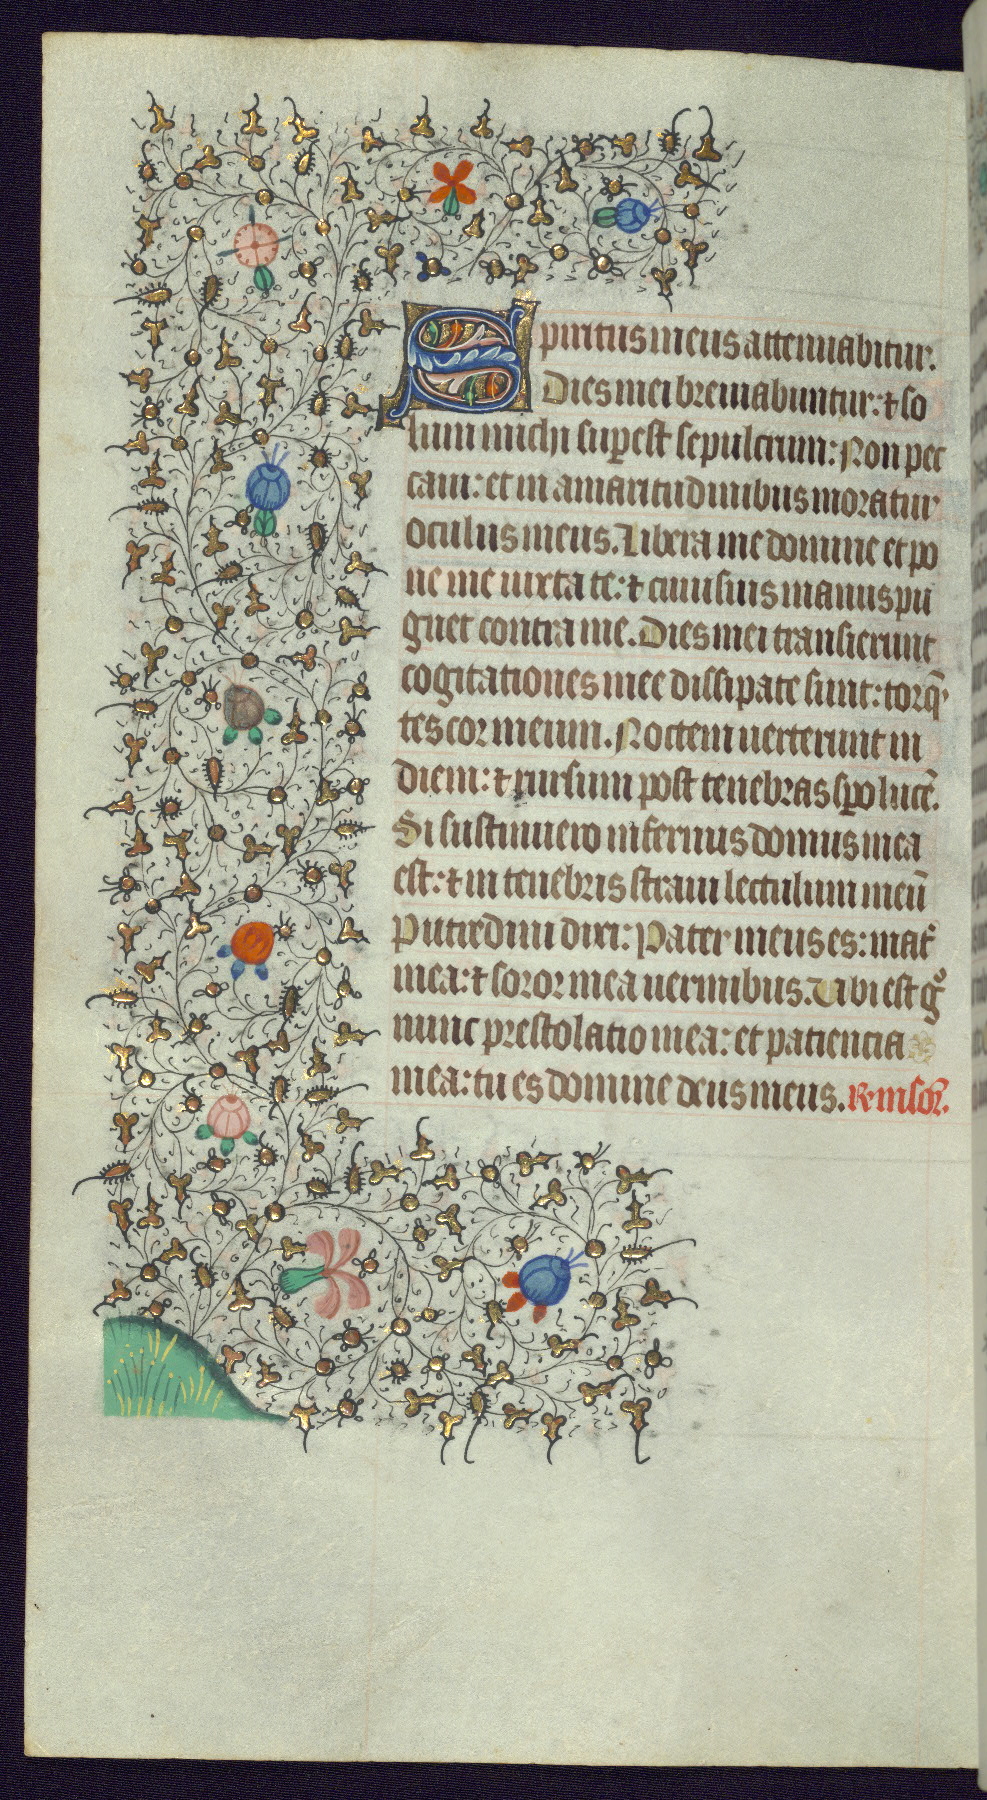 Spiritus meus attenuabitur.
Dies mei breuiabuntur: ⁊ so
lum michi supest sepulcrum: Non pec
caui: et in amaritudinibus moratur
oculus meus. Libera me domine et po
ne me iuxta te: ⁊ cuiusuis manus pu
gnet contra me. Dies mei transierunt
cogitationes mee dissipate sunt: torq̄
tes cor meum. Noctem uerterunt in
diem: ⁊ rursum post tenebras spo lucē.
Si sustinuero infernus domus mea
est: ⁊ in tenebris straui lectulum meū
Putredini dixi: Pater meus es: mat̄
mea: ⁊ soror mea uermibus. Ubi est gͦ
nunc prestolatio mea: et patiencia
mea: tu es domine deus meus.